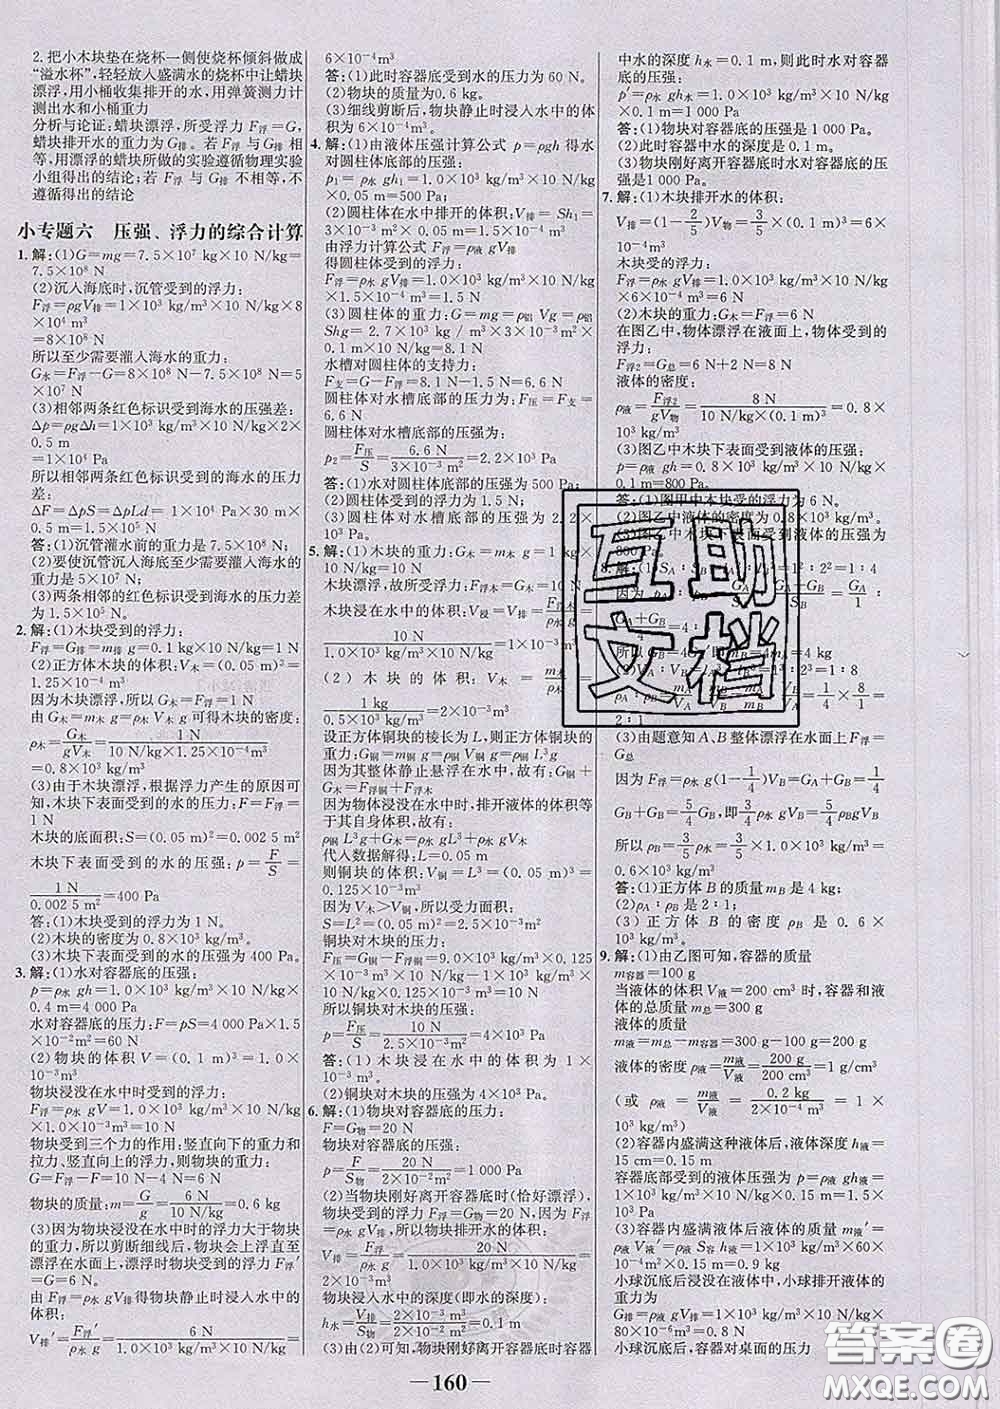 2. 把小木块垫在烧杯一侧使烧杯倾斜做成
“溢水杯”,轻轻放入盛满水的烧杯中让蜡块
漂浮,用小桶收集排开的水,用弹簧测力计
测出水和小桶重力
分析与论证:蜡块漂浮,所受浮力 F浮=G,
蜡块排开水的重力为 G排。若 F浮与 G排 相
等,用漂浮的蜡块所做的实验遵循物理实验
小组得出的结论;若 F浮与 G排 不相等,不
遵循得出的结论
小专题六 压强、浮力的综合计算
1. 解:(1)G=mg=7.5×10⁷ kg×10 N/kg=
7.5×10⁸ N
(2)沉入海底时,沉管受到的浮力:
F浮=ρgV排=1×10³ kg/m³×10 N/kg×8
×10⁴ m³
=8×10⁸ N
所以至少需要灌入海水的重力:
G水=F浮-G=8×10⁸ N-7.5×10⁸ N=5
×10⁷ N
(3)相邻两条红色标识受到海水的压强差:
Δp=ρgΔh=1×10³ kg/m³×10 N/kg×2×
0.5 m
=1×10⁴ Pa
所以相邻两条红色标识受到的海水的压力
差:
ΔF=ΔpS=ΔpLd= 1×10⁴ Pa×30 m×
0.5 m=1.5×10⁵ N
答:(1)沉管灌水前的重力是 7.5×10⁸ N;
(2)要使沉管沉入海底至少需要灌入海水的
重力为 5×10⁷ N;
(3)两条相邻的红色标识受到海水的压力差
为 1.5×10⁵ N
2. 解:(1)木块受到的浮力:
F浮=G排=m排 g=0.1 kg×10 N/kg=1 N
(2)正方体木块的体积:V木=(0.05 m)³=
1.25×10⁻⁴ m³
因为木块漂浮,所以 G木=F浮=1 N
由 G木=m木 g=ρ木 gV木 可得木块的密度:
ρ木=G木/gV木=1 N/10 N/kg×1.25×10⁻⁴ m³
=0.8×10³ kg/m³
(3)由于木块漂浮,根据浮力产生的原因可
知,木块下表面受到的水的压力:F=F浮=
1 N
木块的底面积:S=(0.05 m)²=0.002 5 m²
木块下表面受到的水的压强:p=F/S=
1 N/0.002 5 m²=400 Pa
答:(1)木块受到的浮力为 1 N。
(2)木块的密度为 0.8×10³ kg/m³。
(3)木块下表面受到水的压强为 400 Pa。
3. 解:(1)水对容器底的压强:
p=ρ水 gh=1.0×10³ kg/m³×10 N/kg×
0.4 m=4 000 Pa
水对容器底的压力:F=pS=4 000 Pa×1.5
×10⁻² m²=60 N
(2)物块的体积 V=(0.1 m)³=1.0×
10⁻³m³
物块浸没在水中时受到的浮力:
F浮=ρ水 gV=1.0×10³ kg/m³×10 N/kg×
1.0×10⁻³ m³=10 N
物块受到三个力的作用:竖直向下的重力和
拉力、竖直向上的浮力,则物块的重力:
G=F浮-F拉=10 N-4 N=6 N
物块的质量:m=G/g=6 N/10 N/kg=0.6 kg
(3)因为物块浸没在水中时的浮力大于物块
的重力,所以剪断细线后,物块会上浮直至
漂浮在水面上,漂浮时物块的浮力 F浮′
=G=6 N
由 F浮=ρ水 gV排得物块静止时浸入水中的
体积:
V排′=F浮′/ρ水 g=6 N/1.0×10³ kg/m³×10 N/kg=
6×10⁻⁴m³
答:(1)此时容器底受到水的压力为 60 N。
(2)物块的质量为0.6 kg。
(3)细线剪断后,物块静止时浸入水中的体
积为 6×10⁻⁴m³。
4. 解:(1)由液体压强计算公式 p=ρgh 得水
对圆柱体底部的压强:
p₁=ρ水 gh₁=1.0×10³ kg/m³×10 N/kg×
0.05 m=500 Pa;
(2)圆柱体在水中排开的体积:V排=Sh₁=
3×10⁻³ m²×0.05 m=1.5×10⁻⁴ m³
由浮力计算公式 F浮=ρ液 gV排
得圆柱体受到的浮力:
F浮=ρ水 gV排=1.0×10³ kg/m³×10 N/kg
×1.5×10⁻⁴ m³=1.5 N
(3)圆柱体的重力:G=mg=ρ铝 Vg=ρ铝
Shg=2.7×10³ kg/m³×3×10⁻³ m²×
0.10 m×10 N/kg=8.1 N
水槽对圆柱体的支持力:
F支=G-F浮=8.1 N-1.5 N=6.6 N
圆柱体对水槽底部的压力:F压=F支=
6.6 N
圆柱体对水槽底部的压强为:
p₂=F压/S=6.6 N/3×10⁻³ m²=2.2×10³ Pa
答:(1)水对圆柱体底部的压强为 500 Pa;
(2)圆柱体受到的浮力为 1.5 N;
(3)圆柱体对水槽底部的压强为 2.2×
10³ Pa。
5. 解:(1)木块的重力:G木=m木 g=1 kg×
10 N/kg=10 N
木块漂浮,故所受浮力 F浮木=G木=10 N
木块浸在水中的体积:V浸=V排=F浮木/ρ水 g=
10 N/1.0×10³ kg/m³×10 N/kg
(2)木块的体积:V木=
1 kg/0.5×10³ kg/m³=2×10⁻³ m³
设正方体铜块的棱长为 L,则正方体铜块的
重力:G铜=m铜 g=ρ铜 gV铜=ρ铜 L³g
因为其整体静止悬浮在水中,故有:G铜+
G木=F浮铜+F浮木
因为物体浸没在水中时,排开液体的体积等
于其自身体积,故有:
ρ铜 L³g+G木=ρ水 gL³+ρ水 gV木
代入数据解得:L=0.05 m
则铜块的体积:V铜=L³=(0.05 m)³=
0.125×10⁻³ m³
因为 V木>V铜,所以受力面积:
S=L²=(0.05 m)²=2.5×10⁻³ m²
铜块对木块的压力:
F压=G铜-F浮铜=10 N/kg×0.125×
10⁻³ m³
所以铜块对木块的压强:
p=F压/S=10 N/2.5×10⁻³ m²=4×10³ Pa
答:(1)木块浸在水中的体积为 1×
10⁻³ m³。
(2)铜块对木块的压强为 4×10³ Pa。
6. 解:(1)物块对容器底的压力:
F=G物=20 N
物块对容器底的压强:
p=F/S=20 N/2×10⁻² m²=1 000 Pa
(2)当物块刚好离开容器底时(恰好漂浮),
物块受到的浮力 F浮=G物=20 N,由 F浮=
ρ水 gV排知,物块排开水的体积:
V排=F浮/ρ水 g=20 N/1.0×10³ kg/m³×10 N/kg=
2×10⁻³ m³
物块浸入水中的深度(即水的深度):
h水=V排/S物=2×10⁻³ m³/2×10⁻² m²=0.1 m
(3)由(2)可知,物块刚好离开容器底时容器
中水的深度 h水=0.1 m,则此时水对容器
底的压强:
p′=ρ水 gh水=1.0×10³ kg/m³×10 N/kg
×0.1 m=1 000 Pa
答:(1)物块对容器底的压强是 1 000 Pa;
(2)此时容器中水的深度是 0.1 m;
(3)物块刚好离开容器底时,水对容器底的
压强是 1 000 Pa。
7. 解:(1)木块排开水的体积:
V排=(1-2/5)V物=3/5×(0.1 m)³=6×10⁻⁴ m³
木块受的浮力:
F浮=ρ水 gV排=1.0×10³ kg/m³×10 N/kg
×6×10⁻⁴ m³=6 N
(2)木块的重力:G物=F浮=6 N
在图乙中,物体漂浮在液面上,物体受到的
浮力:
F浮2=G总=6 N+2 N=8 N
液体的密度:
ρ液=F浮2/gV物=8 N/10 N/kg×(0.1 m)³=0.8×
10³ kg/m³
(3)图乙中木块下表面受到液体的压强:
p=ρ液 gh=0.8×10³ kg/m³×10 N/kg×
0.1 m=800 Pa。
答:(1)图甲中木块受的浮力为 6 N。
(2)图乙中液体的密度为 0.8×10³ kg/m³。
(3)图乙中木块下表面受到液体的压强为
800 Pa。
8. 解:(1)S_A:S_B=1²:2²=1:4
(3)由题意知 A、B 整体漂浮在水面上 F浮=
G总
因为 F浮=ρ水 g(1-1/4)V_B=G_A+G_B=1/4
G_B+G_B=5/4 G_B,即3/4ρ水 gV_B=5/4ρ_BgV_B
所以 ρ_B=3/5ρ水=3/5×1.0×10³ kg/m³=
0.6×10³ kg/m³
答:(1)正方体 B 的质量 m_B 是 4 kg;
(2)ρ_A:ρ_B 是 2:1;
(3)正方体 B 的密度 ρ_B 是 0.6×
10³ kg/m³。
9. 解:(1)由乙图可知,容器的质量
m容器=100 g
当液体的体积 V液=200 cm³ 时,容器和液
体的总质量 m总=300 g
液体的质量
m液=m总-m容器=300 g-100 g=200 g
液体的密度 ρ液=m液/V液=200 g/200 cm³=1 g/cm³
(或 ρ液=m液/V液=0.2 kg/2×10⁻⁴ m³=1×
10³ kg/m³)
(2)容器内盛满这种液体后,液体深度 h液=
15 cm=0.15 m
容器底部受到的液体压强为 p=ρ液 gh液=
1×10³ kg/m³×10 N/kg×0.15 m=1.5×
10³ Pa
(3)容器内盛满液体后液体的质量 m液′=
ρ液 V液=ρ液 S容 h液=1×10³ kg/m³×
0.15 m=0.9 kg
小球沉底后浸没在液体中,小球排开液体的
G排=ρ液 gV排=1×10³ kg/m³×10 N/kg×
80×10⁻⁶ m³=0.8 N
小球沉底后,容器对桌面的压力
— 160 —
互助文档
答案圈
MXQE.COM